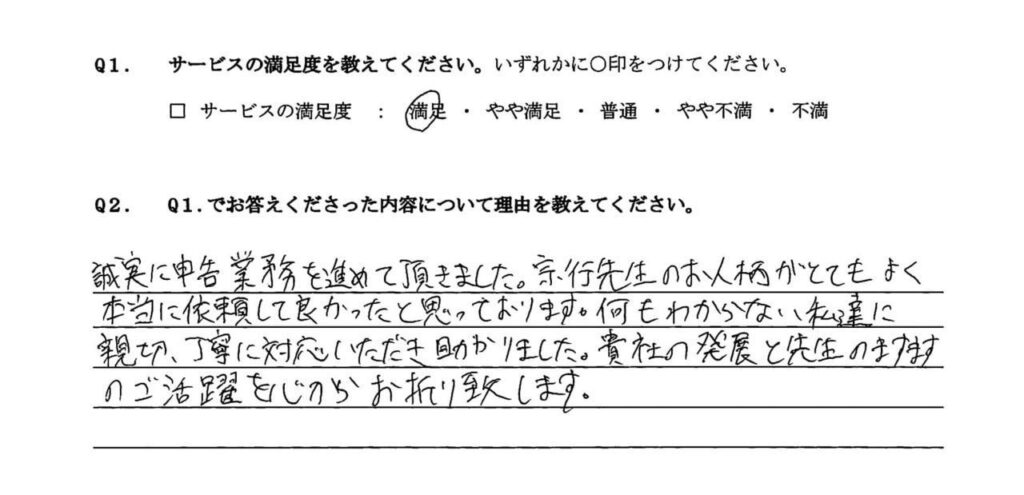 Q1. サービスの満足度を教えてください。いずれかに〇印をつけてください。
□ サービスの満足度 ： 満足 ・ やや満足 ・ 普通 ・ やや不満 ・ 不満
Q2. Q1.でお答えくださった内容について理由を教えてください。
誠実に申告業務を進めて頂きました。宗行先生のお人柄がとてもよく
本当に依頼して良かったと思っております。何もわからない私達に
親切、丁寧に対応いただき助かりました。貴社の発展と先生のますます
のご活躍を心からお祈り致します。